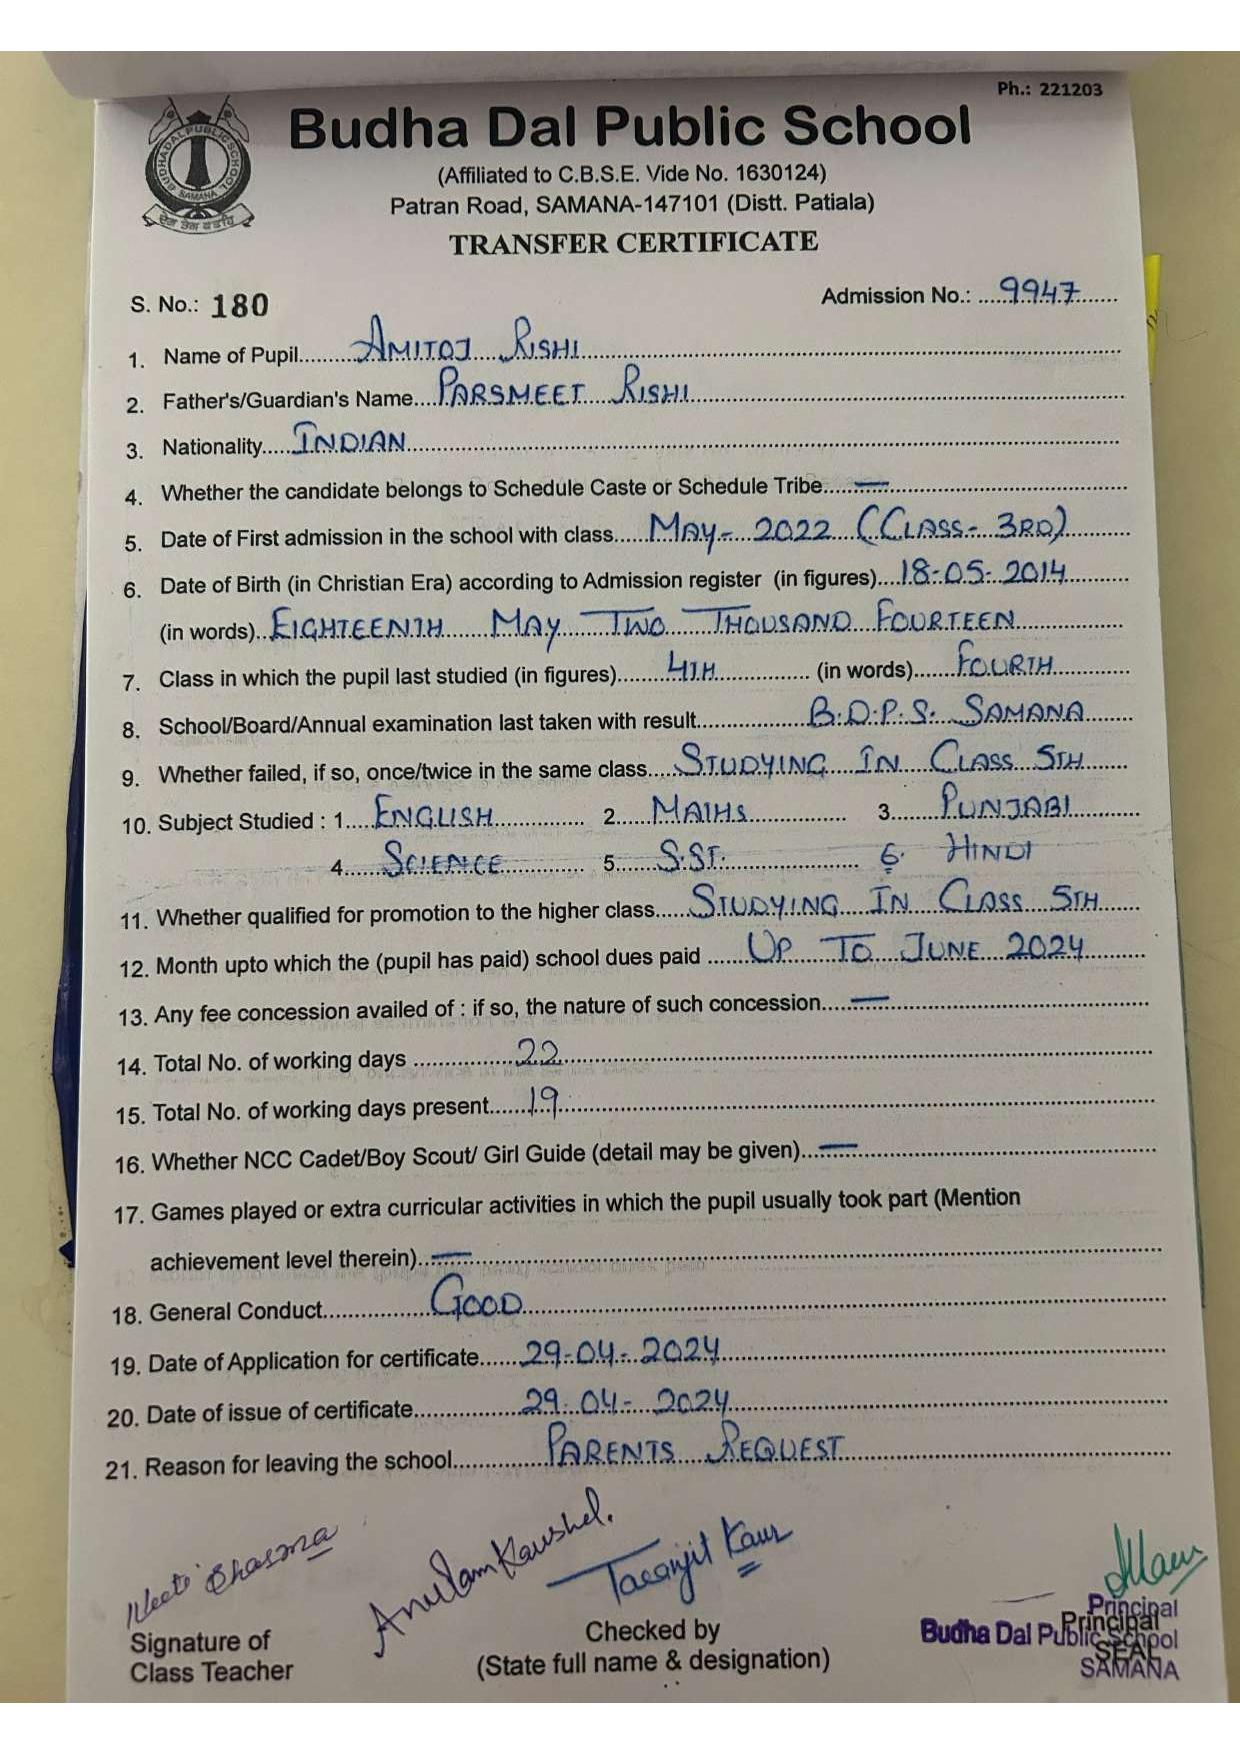 Ph.: 221203
BUDHA DAL PUBLIC SCHOOL
SAMANA
Budha Dal Public School
(Affiliated to C.B.S.E. Vide No. 1630124)
Patran Road, SAMANA-147101 (Distt. Patiala)
TRANSFER CERTIFICATE
S. No.: 180 Admission No.: 9947
1. Name of Pupil AMITOJ RISHI
2. Father's/Guardian's Name PARSMEET RISHI
3. Nationality INDIAN
4. Whether the candidate belongs to Schedule Caste or Schedule Tribe —
5. Date of First admission in the school with class MAY- 2022 (CLASS- 3RD)
6. Date of Birth (in Christian Era) according to Admission register (in figures) 18-05-2014
(in words) EIGHTEENTH MAY TWO THOUSAND FOURTEEN
7. Class in which the pupil last studied (in figures) 4TH (in words) FOURTH
8. School/Board/Annual examination last taken with result B.D.P.S. SAMANA
9. Whether failed, if so, once/twice in the same class STUDYING IN CLASS 5TH
10. Subject Studied : 1. ENGLISH 2. MATHS 3. PUNJABI
4. SCIENCE 5. S.ST. 6. HINDI
11. Whether qualified for promotion to the higher class STUDYING IN CLASS 5TH
12. Month upto which the (pupil has paid) school dues paid UP TO JUNE 2024
13. Any fee concession availed of : if so, the nature of such concession —
14. Total No. of working days 22
15. Total No. of working days present 19
16. Whether NCC Cadet/Boy Scout/ Girl Guide (detail may be given) —
17. Games played or extra curricular activities in which the pupil usually took part (Mention
achievement level therein) —
18. General Conduct GOOD
19. Date of Application for certificate 29-04-2024
20. Date of issue of certificate 29-04-2024
21. Reason for leaving the school PARENTS REQUEST
Taranjit Kaur
Signature of
Class Teacher
Checked by
(State full name & designation)
Principal
SEAL
Principal
Budha Dal Public School
SAMANA